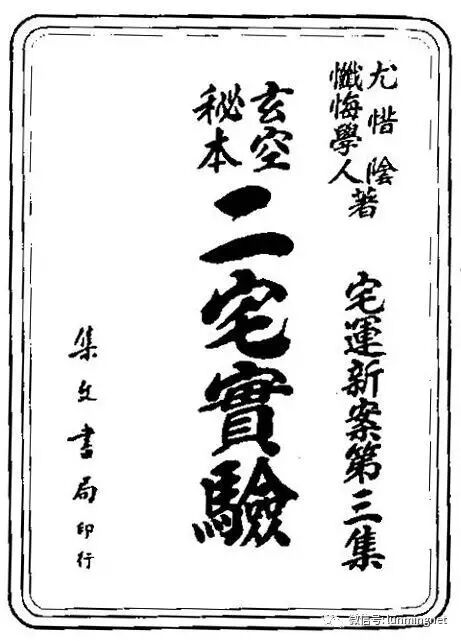 尤惜陰
懺悔學人著
宅運新案第三集
玄空
秘本
二宅實驗
集文書局印行
微信号: lunming.net